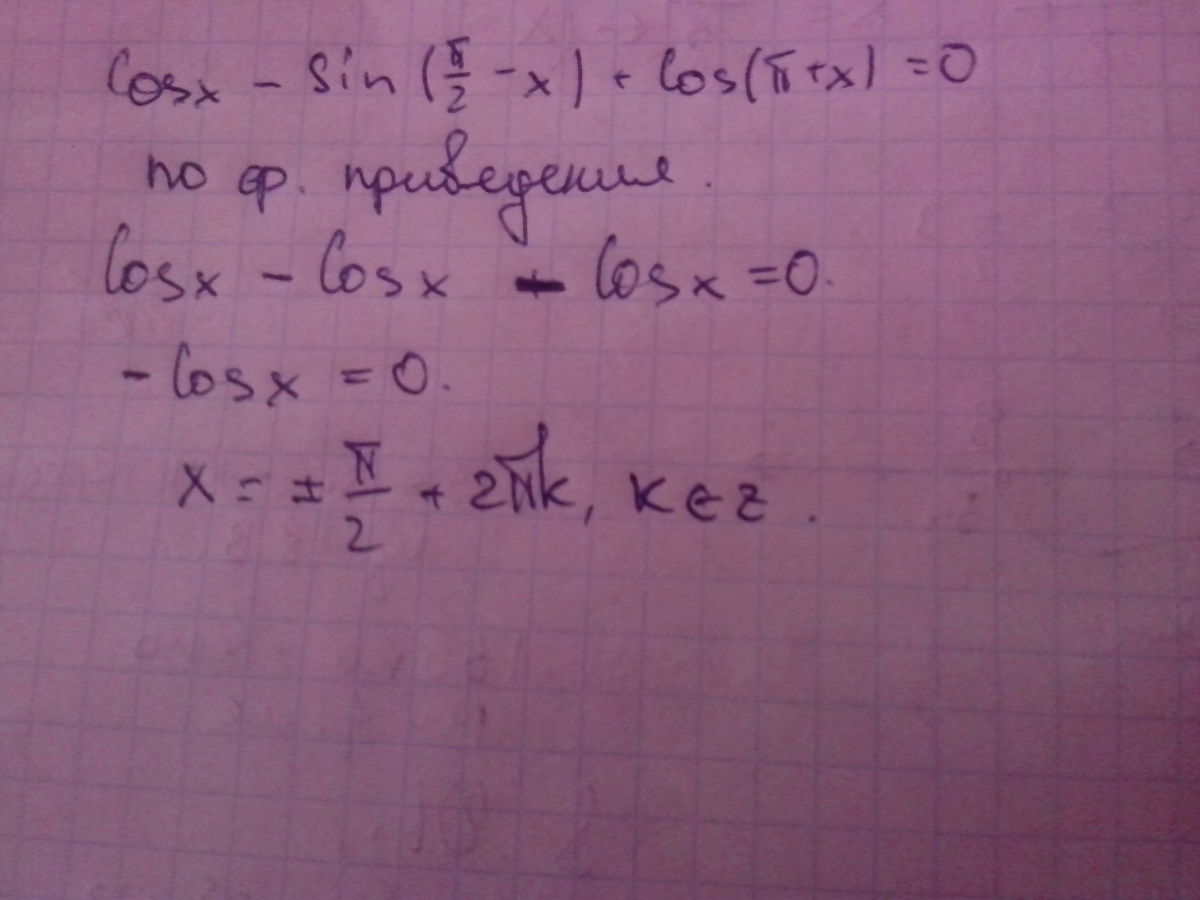 cosx - sin(π/2 - x) + cos(π+x) = 0
по ф. приведения.
cosx - cosx - cosx = 0.
- cosx = 0.
x = ± π/2 + 2πk, k ∈ z.